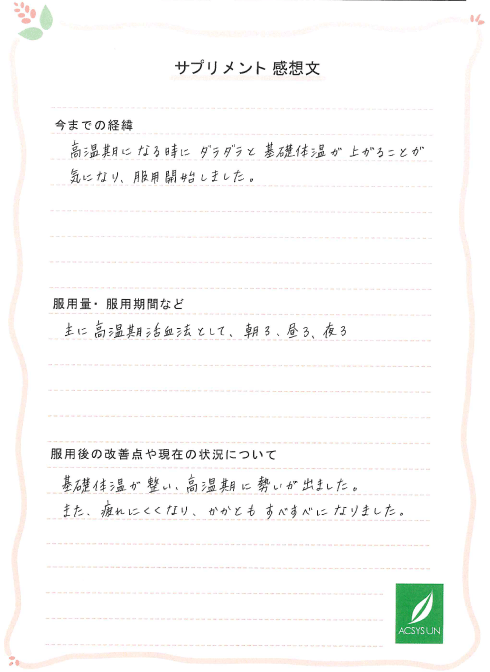 サプリメント 感想文
今までの経緯
高温期になる時に ダラダラと 基礎体温が 上がることが
気になり、服用開始しました。
服用量・服用期間など
主に高温期活血法として、朝3、昼3、夜3
服用後の改善点や現在の状況について
基礎体温が 整い、高温期に 勢いが出ました。
また、疲れにくくなり、かかとも すべすべに なりました。
ACSYSUN